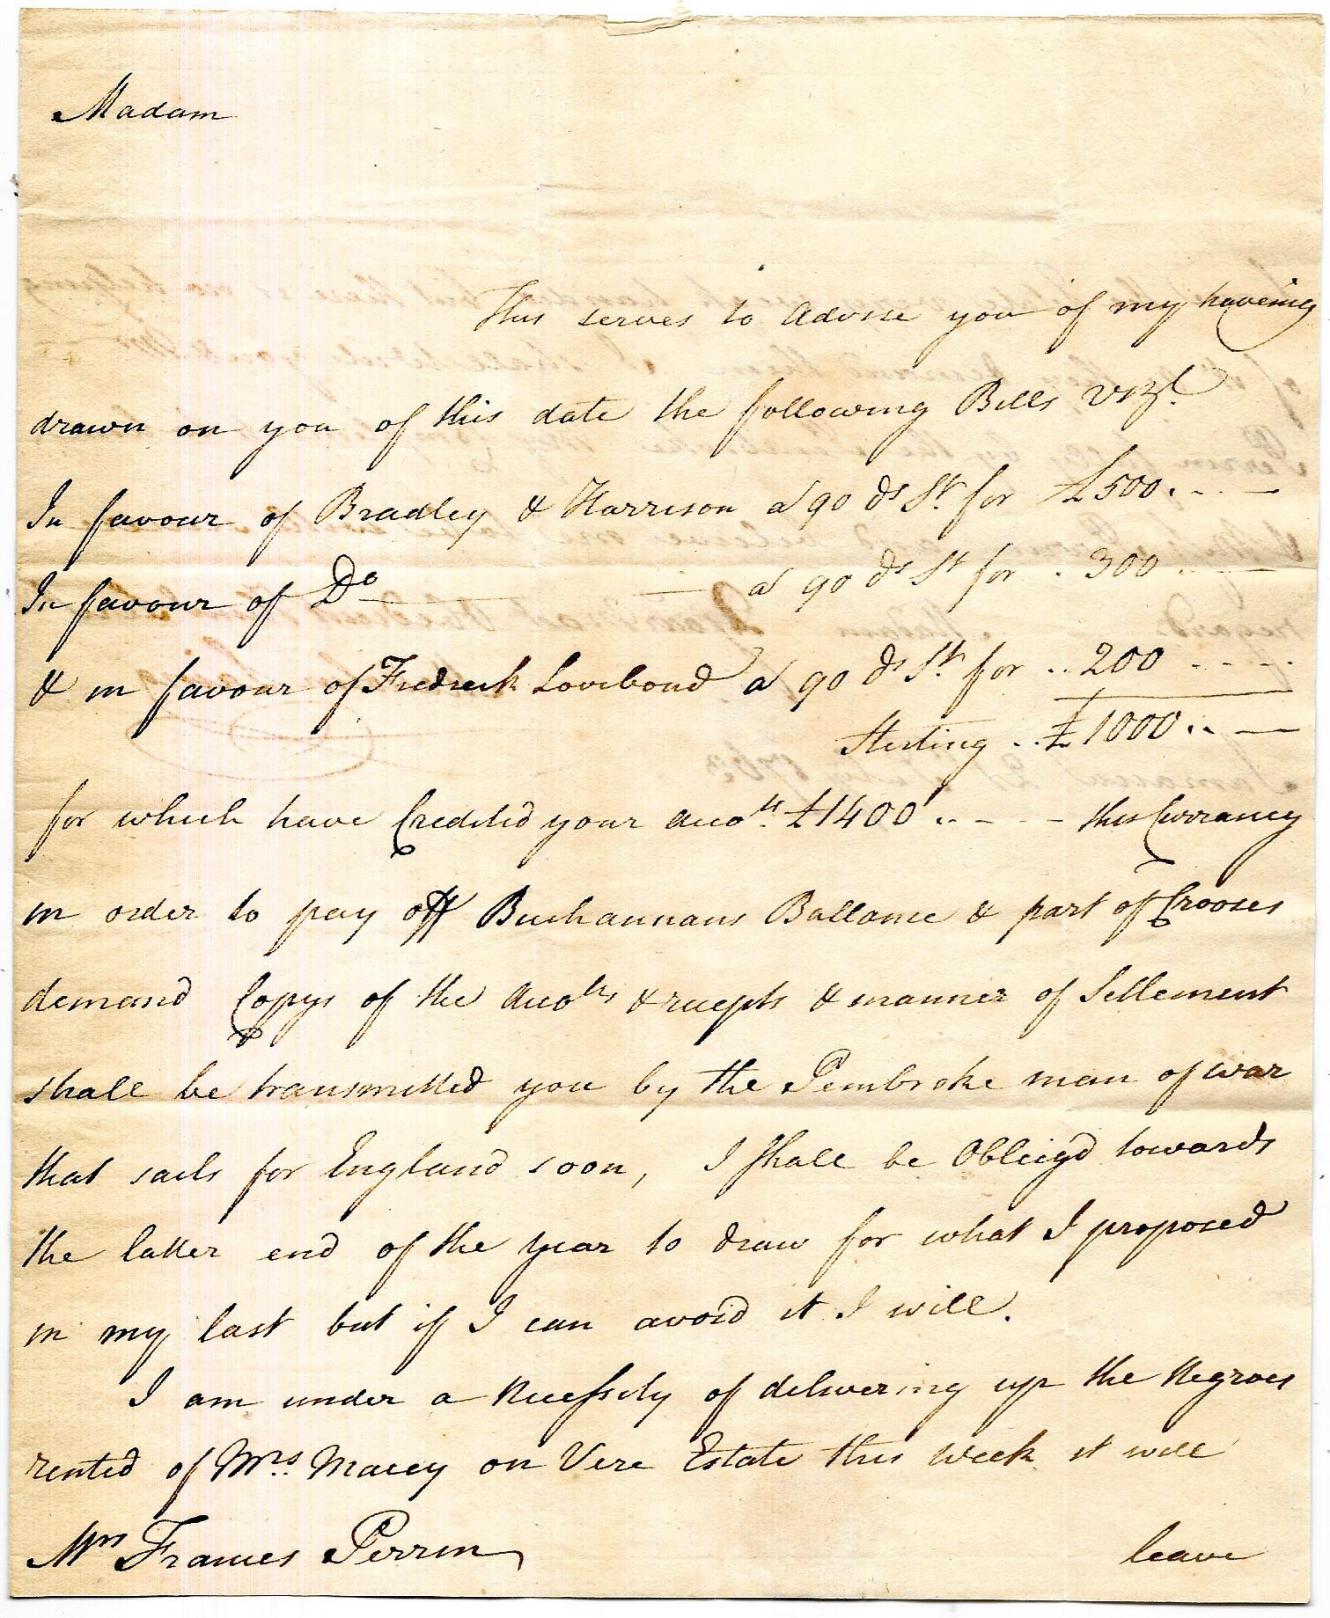 Madam
This serves to advise you of my haveing
drawn on you of this date the following Bills vizt.
In favour of Bradley & Harrison a 90 ds St. for £500 . - - -
In favour of Do — — a 90 ds St for . 300 . - - -
& in favour of Fredreck Lovebond a 90 ds St. for .. 200 - - - -
Sterling .. £1000 .. —
for which have Credited your Accots. £1400 .. - - - this Currancy
in order to pay off Buchannans Ballance & part of Crooses
demand Copys of the Accots & recepts & manner of Settlement
shall be transmitted you by the Pembroke man of war
that sails for England soon, I shall be Obleig'd towards
the latter end of the year to draw for what I proposed
in my last but if I can avoid it I will.
I am under a Necessity of delivering up the Negroes
rented of Mrs. Macey on Vere Estate this week it will
Mrs Frances Perrin
leave